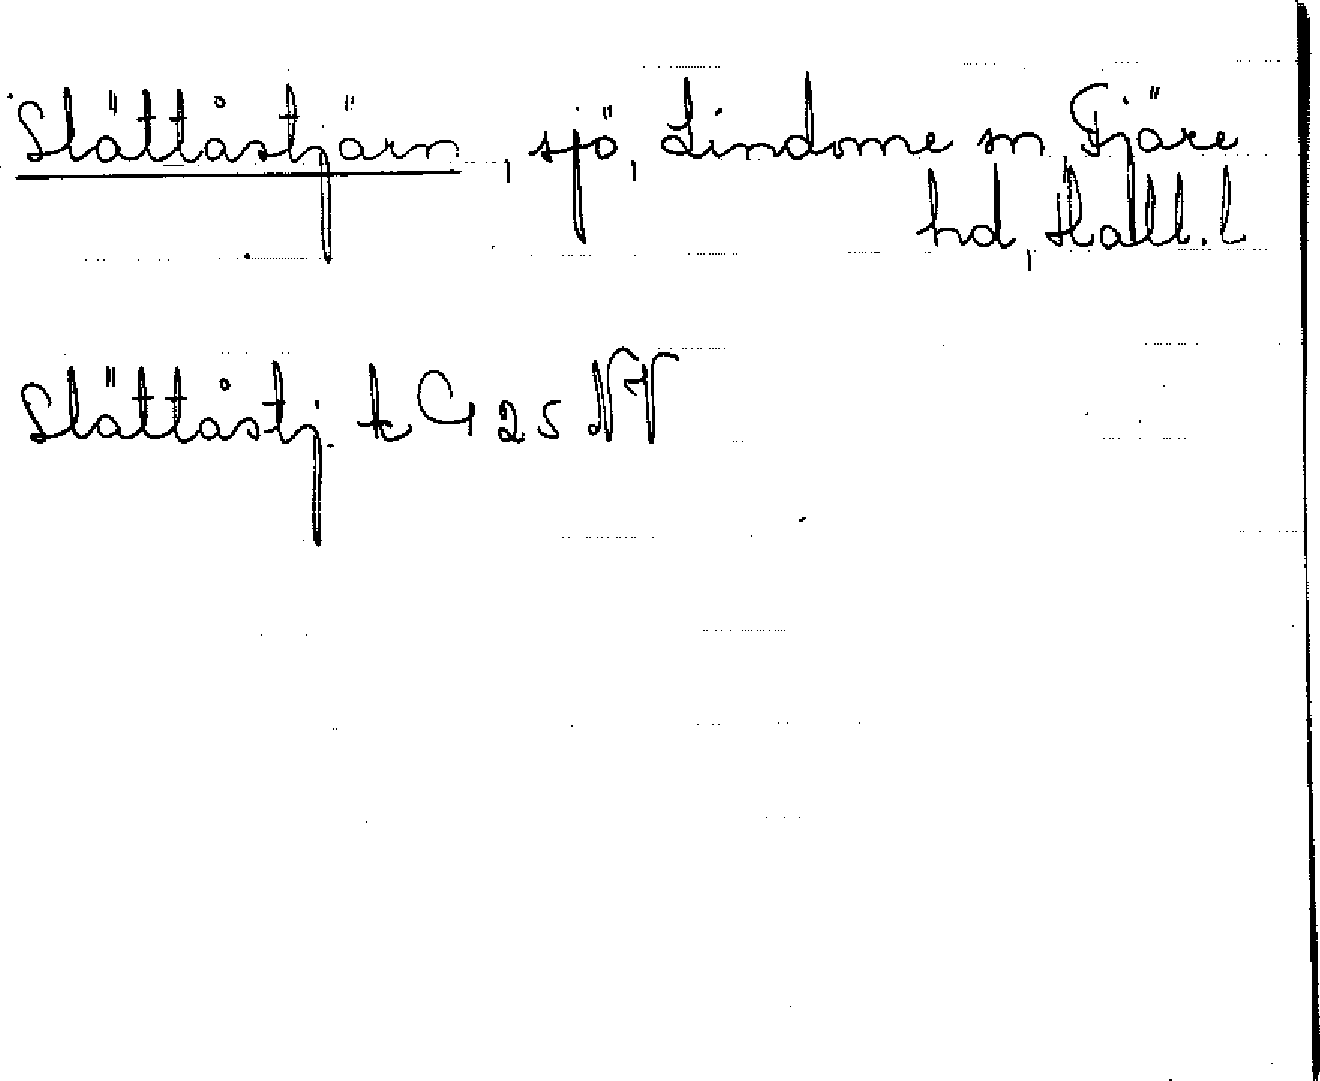 Slättåstjärn, sjö, Lindome sn, Fjäre
hd, Hall. l
Slättåstj. tc G 25 NV